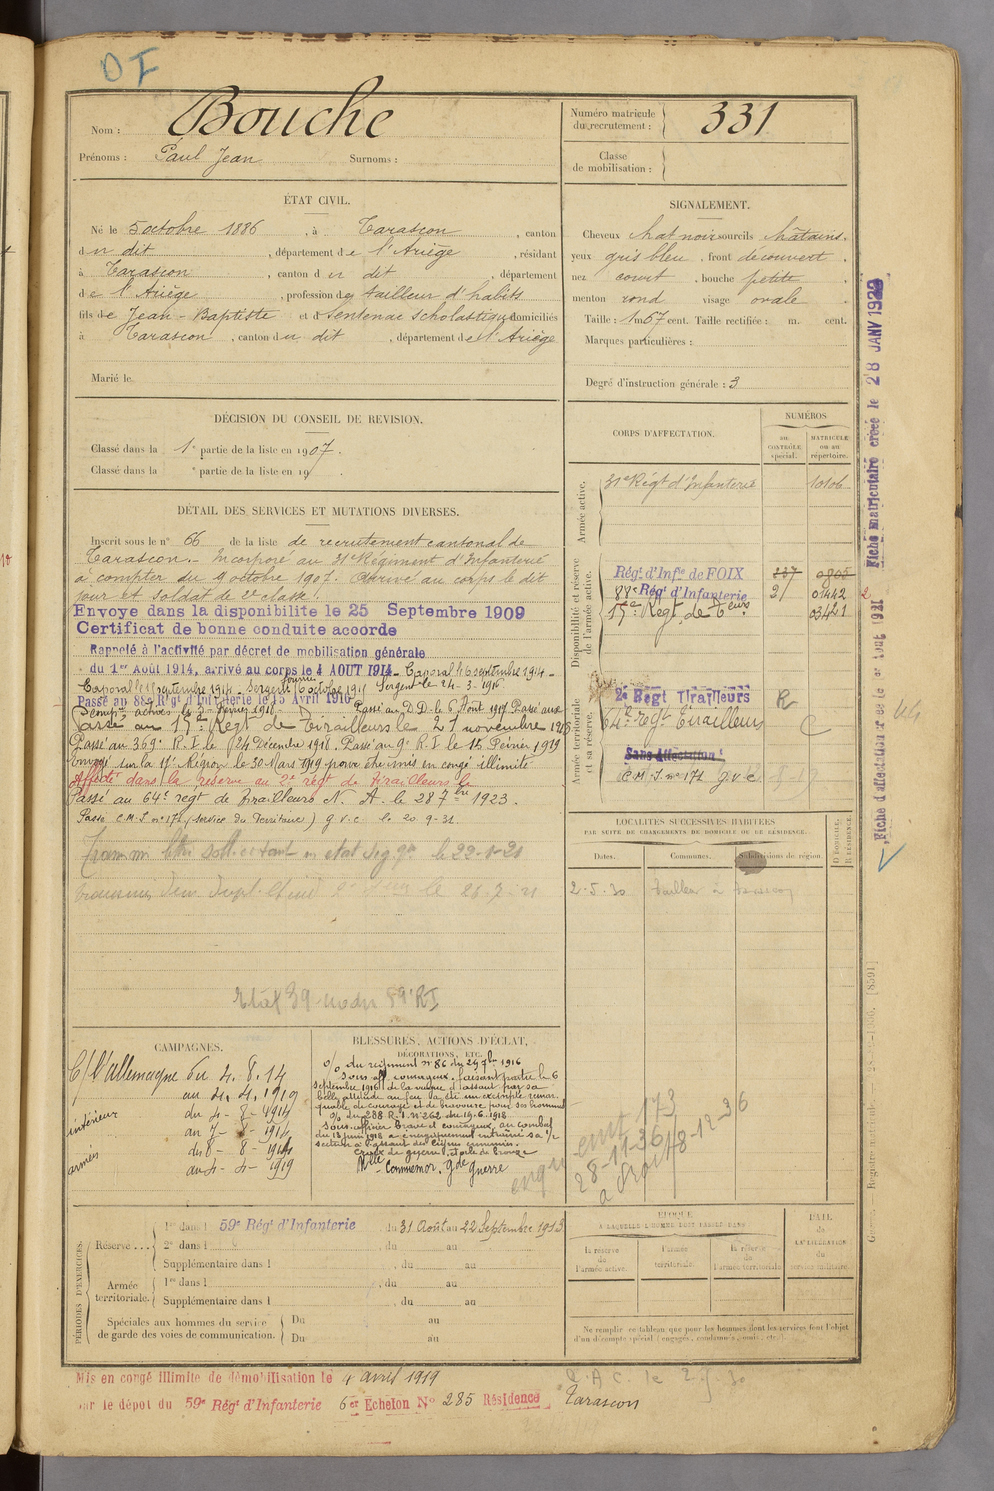 OI
Nom : Bouche
Prénoms : Paul Jean Surnoms :
Numéro matricule du recrutement : 331
Classe de mobilisation :
ÉTAT CIVIL.
Né le 5 octobre 1886, à Tarascon, canton
du dit, département de l'Ariège, résidant
à Tarascon, canton du dit, département
de l'Ariège, profession de tailleur d'habits
fils de Jean-Baptiste et de Sentenac Scholastique domiciliés
à Tarascon, canton du dit, département de l'Ariège
Marié le
SIGNALEMENT.
Cheveux chat noir sourcils châtains.
yeux gris bleu, front découvert,
nez court, bouche petite,
menton rond visage ovale.
Taille : 1 m 67 cent. Taille rectifiée : m. cent.
Marques particulières :
Degré d'instruction générale : 3
DÉCISION DU CONSEIL DE REVISION.
Classé dans la 1e partie de la liste en 1907.
Classé dans la e partie de la liste en 19
DÉTAIL DES SERVICES ET MUTATIONS DIVERSES.
Inscrit sous le n° 66 de la liste de recrutement cantonal de
Tarascon. Incorporé au 31e Régiment d'Infanterie
à compter du 9 octobre 1907. Arrivé au corps le dit
jour et soldat de 2e classe.
Envoye dans la disponibilite le 25 Septembre 1909
Certificat de bonne conduite accorde
Rappelé à l'activité par décret de mobilisation générale
du 1er Août 1914, arrivé au corps le 4 AOUT 1914 - Caporal le 6 septembre 1914 -
Sergent le 24-3-1916
Passé au 88e Régt d'Infanterie le 15 Avril 1916
Passé au D.D. le 6 Août 1917 Passé aux
Passé au 17e Régt de Tirailleurs le 21 novembre 19
Passé au 369e R.I. le 24 Décembre 1918. Passé au 9e R.I. le 15 Février 1919
Envoyé sur la 17e Région le 30 Mars 1919 pour être mis en congé illimité
Affecté dans la réserve au 2e régt de tirailleurs le
Passé au 64e regt de Tirailleurs N. A. le 28 7bre 1923.
Passé C.M.I. n° 171 (service du Territoire) g v c le 20-9-31.
CORPS D'AFFECTATION.
NUMÉROS
AU CONTRÔLE spécial.
MATRICULE ou au répertoire.
Armée active.
31e Régt d'Infanterie 10106
Disponibilité et réserve de l'armée active.
Régt d'Infie de FOIX 237 0805
88e Régt d'Infanterie 21 01442
17e Régt de Teurs 03421
Armée territoriale et sa réserve.
2e Régt Tirailleurs R
64e Régt Tirailleurs C
Sans Affectation
C.M.I. n° 171 g.v.c.
LOCALITÉS SUCCESSIVES HABITÉES
PAR SUITE DE CHANGEMENTS DE DOMICILE OU DE RÉSIDENCE.
Dates. Communes. Subdivisions de région. D. DOMICILE, R. RÉSIDENCE.
2.5.30 Tailleur à Tarascon
CAMPAGNES.
C/ l'Allemagne du 4.8.14
au 4.4.1919
intérieur du 4-8-1914
au 7-8-1914
armées du 8-8-1914
au 4-4-1919
BLESSURES, ACTIONS D'ÉCLAT,
DÉCORATIONS, ETC.
O/ du régiment n° 86 du 29 7bre 1916
Sous off courageux. faisant partie le 6
septembre 1916 de la vague d'assaut par sa
belle attitude au feu, a été un exemple remar
quable de courage et de bravoure pour ses hommes
O/ du 288 R.I. n° 262 du 19-6-1918
Sous-officier brave et courageux, au combat
du 13 juin 1918 a énergiquement entraîné sa 1/2
section à l'assaut des lignes ennemies
Croix de guerre étoile de bronze
Mlle Commémor. gde guerre
28-11-36
8-12-36
PÉRIODES D'EXERCICES.
Réserve... 1re dans l 59e Régt d'Infanterie du 31 Août au 22 Septembre 1913
2e dans l , du au
Supplémentaire dans l , du au
Armée territoriale. 1re dans l , du au
Supplémentaire dans l , du au
Spéciales aux hommes du service de garde des voies de communication. Du au
Du au
ÉPOQUE
À LAQUELLE L'HOMME DOIT PASSER DANS
la réserve de l'armée active.
l'armée territoriale.
la réserve de l'armée territoriale.
DATE de LA LIBÉRATION du service militaire.
Ne remplir ce tableau que pour les hommes dont les services font l'objet
d'un décompte spécial (engagés, condamnés, omis, etc.).
Mis en congé illimité de démobilisation le 4 avril 1919
par le dépôt du 59e Régt d'Infanterie 6er Echelon N° 285 Résidence Tarascon
Fiche matriculaire créée le 28 JANV 1922